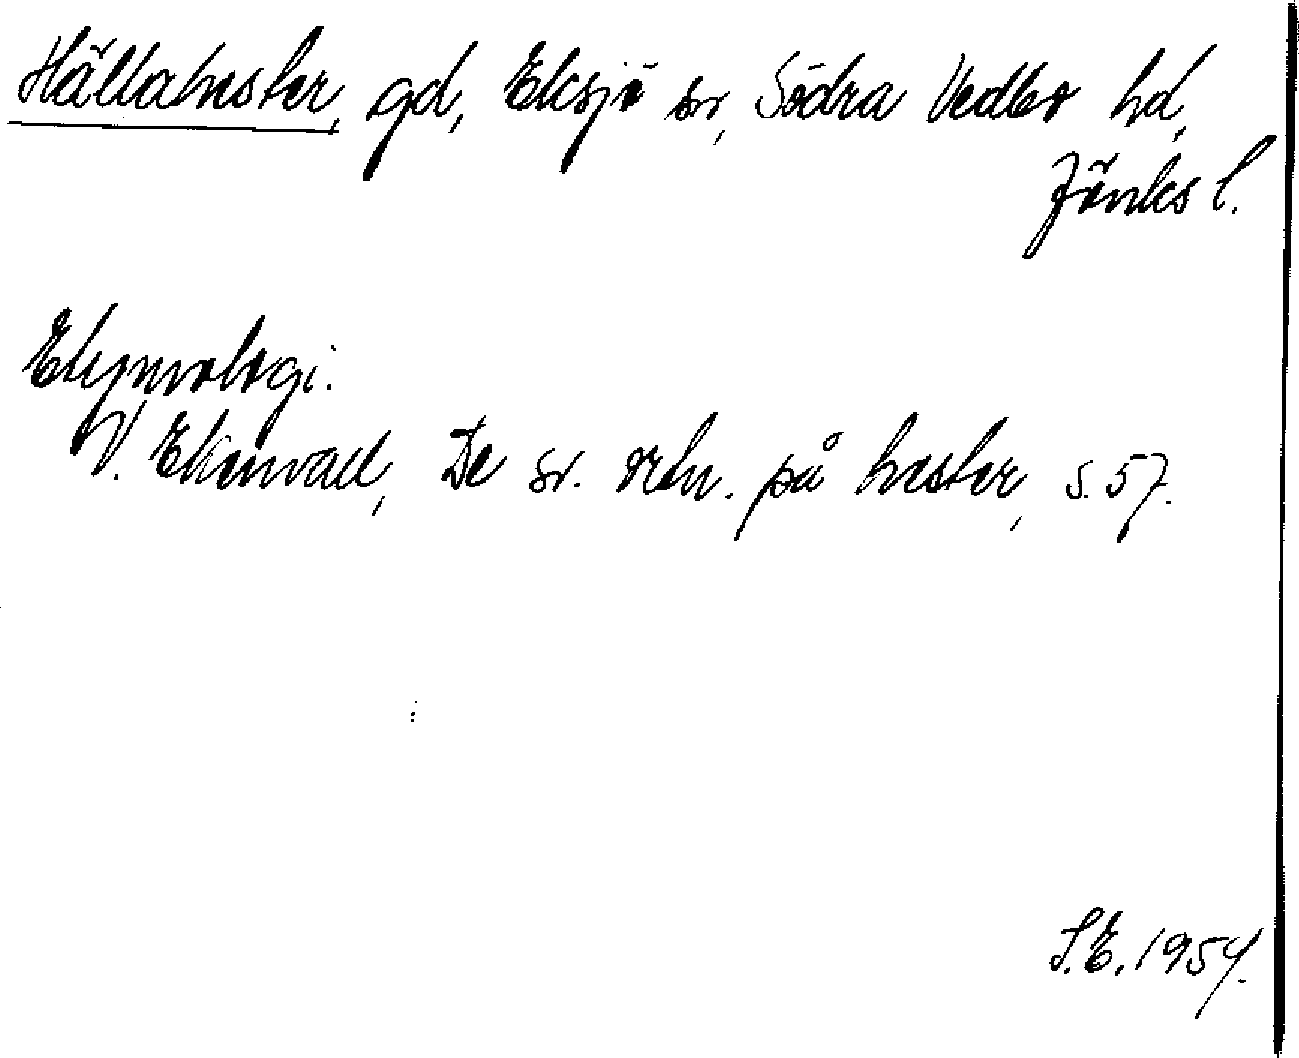 Hällahester, gd, Eksjö sn, Södra Vedbo hd,
Jönks l.
Etymologi.
V. Ekenvall, De sv. ortn. på hester, s. 57.
S.E. 1954.